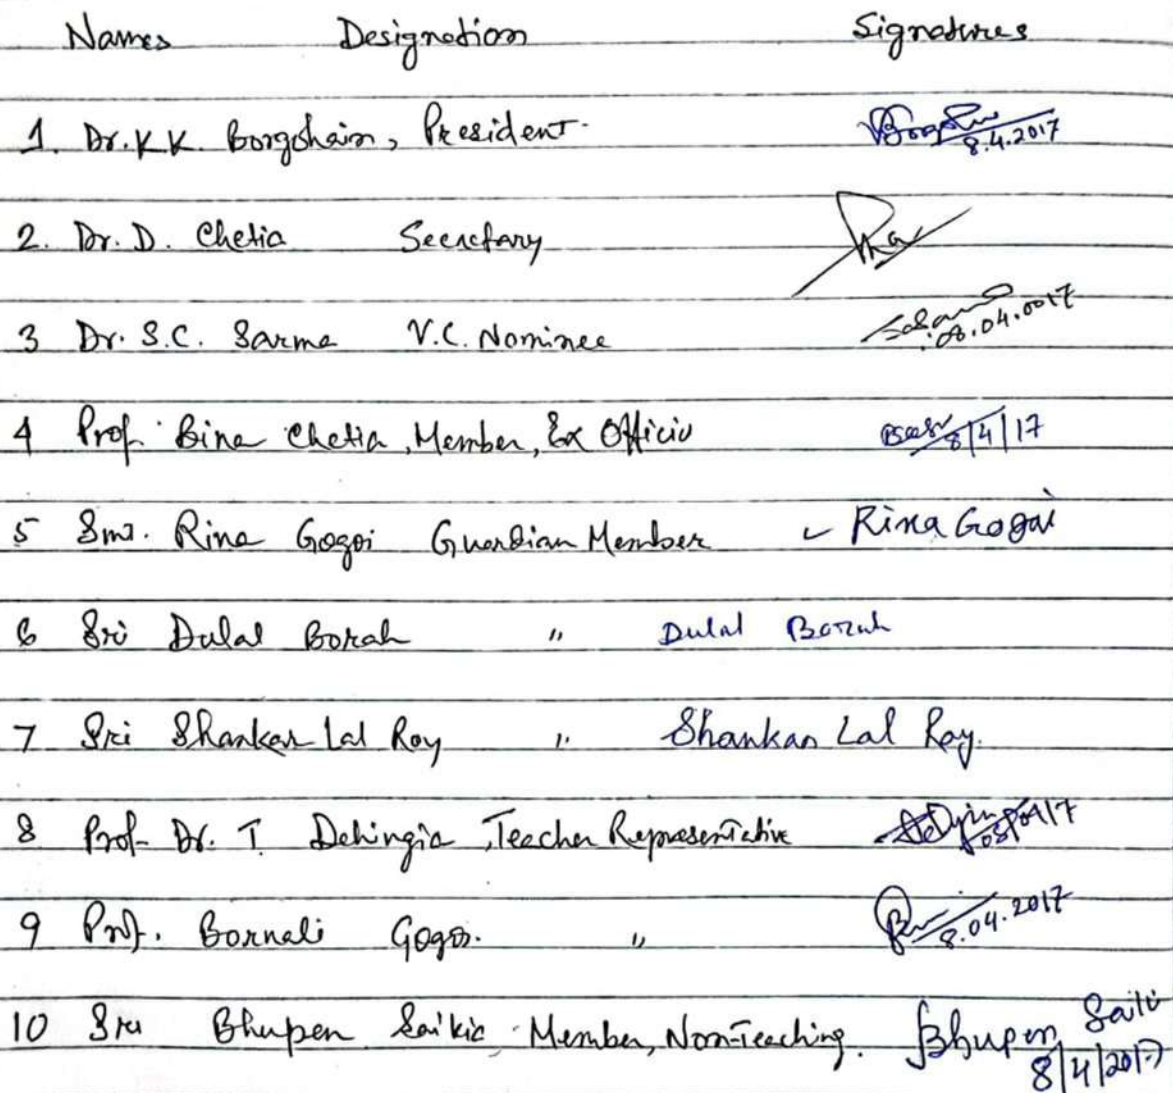 Names Designation Signatures
1. Dr. K.K. Borgohain, President 8.4.2017
2. Dr. D. Chetia Secretary
3 Dr. S.C. Sarma V.C. Nominee 08.04.0017
4 Prof. Bina Chetia, Member, Ex Officio 8/4/17
5 Smt. Rina Gogoi Guardian Member Rina Gogoi
6 Sri Dulal Borah " Dulal Borah
7 Sri Shankar Lal Roy " Shankar Lal Roy.
8 Prof. Dr. T. Dehingia, Teacher Representative 08/04/17
9 Prof. Bornali Gogoi. " 8.04.2017
10 Sri Bhupen Saikia, Member, Non-Teaching. Bhupen Saikia
8/4/2017